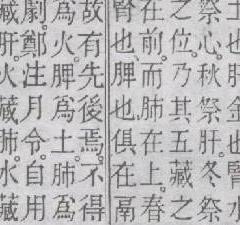 祭心秋祭肝冬祭
之位及其五藏之
在前而肺在上春
腎也脾也俱在鬲
故有先後焉不得
爲火脾爲土肺爲
劇鄭注月令自用
藏肝火藏肺水藏